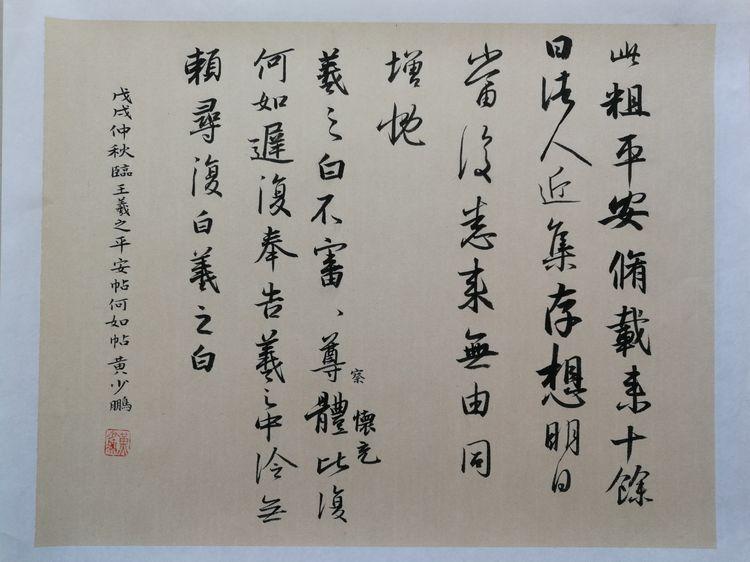 此粗平安脩載来十餘
日諸人近集存想明日
當復悉来無由同
增慨
羲之白不審、尊體比復
察
懷充
何如遲復奉告羲之中冷無
賴尋復白羲之白
戊戌仲秋臨王羲之平安帖何如帖黄少鵬